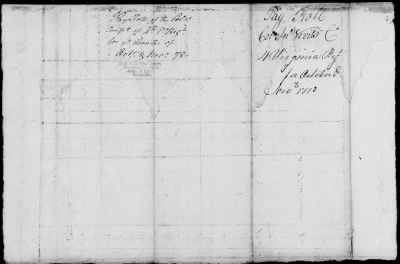 Pay Roll of the Colol
Compy of 4th V Regt
for ye Months of
Octr & Novr 78
Pay Roll
Col Jno Nevils Co
4 Virginia Regt
for October &
Novr 1778